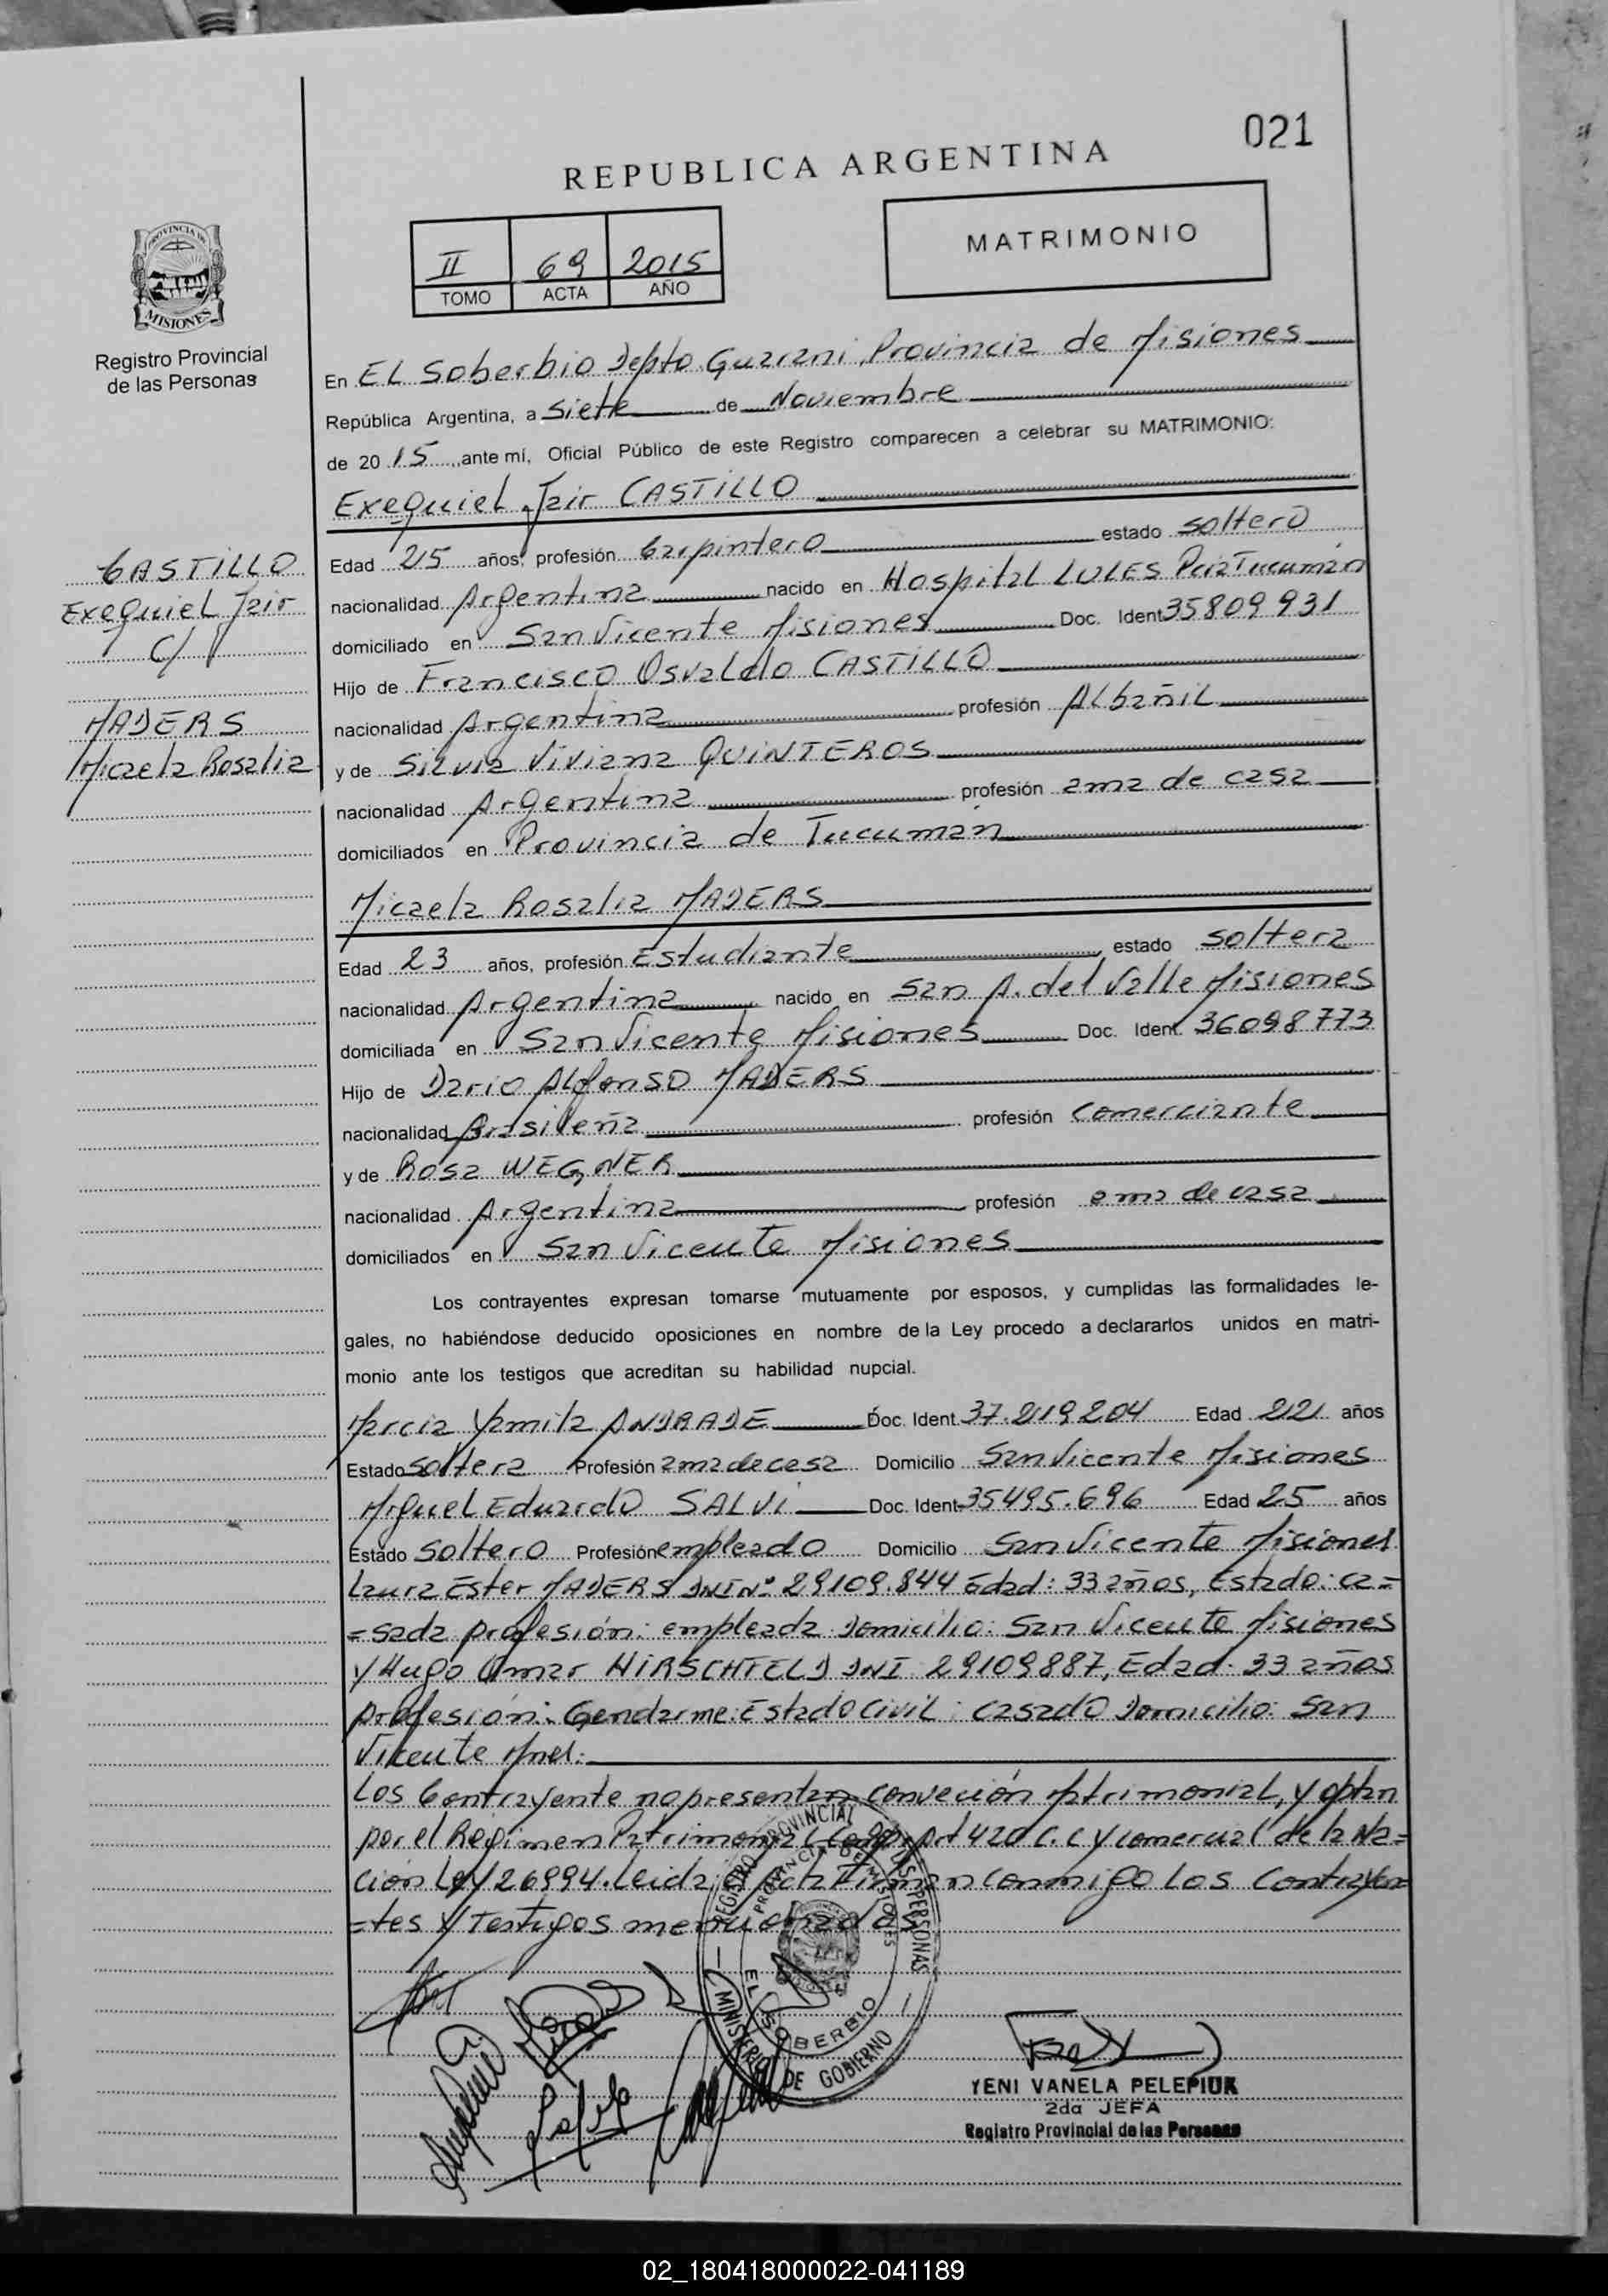 021
REPUBLICA ARGENTINA
II 69 2015
TOMO ACTA AÑO
MATRIMONIO
PROVINCIA DE
MISIONES
Registro Provincial
de las Personas
En EL Soberbio Depto. Guarani, Provincia de Misiones
República Argentina, a Siete de Noviembre
de 20 15 ante mí, Oficial Público de este Registro comparecen a celebrar su MATRIMONIO:
Exequiel Jair CASTILLO
Edad 25 años, profesión Carpintero estado soltero
nacionalidad Argentina nacido en Hospital LULES Tucumán
domiciliado en San Vicente Misiones Doc. Ident 35809931
Hijo de Francisco Osvaldo CASTILLO
nacionalidad Argentina profesión Albañil
y de Silvia Viviana QUINTEROS
nacionalidad Argentina profesión ama de casa
domiciliados en Provincia de Tucumán
CASTILLO
Exequiel Jair
C/
MADERS
Micaela Rosalia
Micaela Rosalia MADERS
Edad 23 años, profesión Estudiante estado soltera
nacionalidad Argentina nacido en San P. del Valle Misiones
domiciliada en San Vicente Misiones Doc. Ident. 36098773
Hijo de Dario Alfonso MADERS
nacionalidad Brasileña profesión Comerciante
y de Rosa WEGNER
nacionalidad Argentina profesión ama de casa
domiciliados en San Vicente Misiones
Los contrayentes expresan tomarse mutuamente por esposos, y cumplidas las formalidades le-
gales, no habiéndose deducido oposiciones en nombre de la Ley procedo a declararlos unidos en matri-
monio ante los testigos que acreditan su habilidad nupcial.
Marcia Yamila ANDRADE Doc. Ident. 37.219.204 Edad 22 años
Estado Soltera Profesión ama de casa Domicilio San Vicente Misiones
Miguel Eduardo SALVI Doc. Ident 35495.696 Edad 25 años
Estado Soltero Profesión empleado Domicilio San Vicente Misiones
Laura Ester MADERS DNI Nº 29109.844 Edad: 33 años, Estado: ca=
=sada profesión: empleada Domicilio: San Vicente Misiones
y Hugo Omar HIRSCHFELD DNI 29109887, Edad: 33 años
profesión: Gendarme: Estado Civil: Casado Domicilio: San
Vicente Mnes:
Los Contrayente no presentan conveción Matrimonial, y optan
por el Regimen Patrimonial Art 420 C.C y Comercial de la Na=
ción Ley 26994. Leida el Acta Firman conmigo Los Contrayen=
=tes y Testigos
REGISTRO PROVINCIAL DE LAS PERSONAS
PROVINCIA DE MISIONES
EL SOBERBIO
MINISTERIO DE GOBIERNO
YENI VANELA PELEPIUK
2da JEFA
Registro Provincial de las Personas
02_180418000022-041189